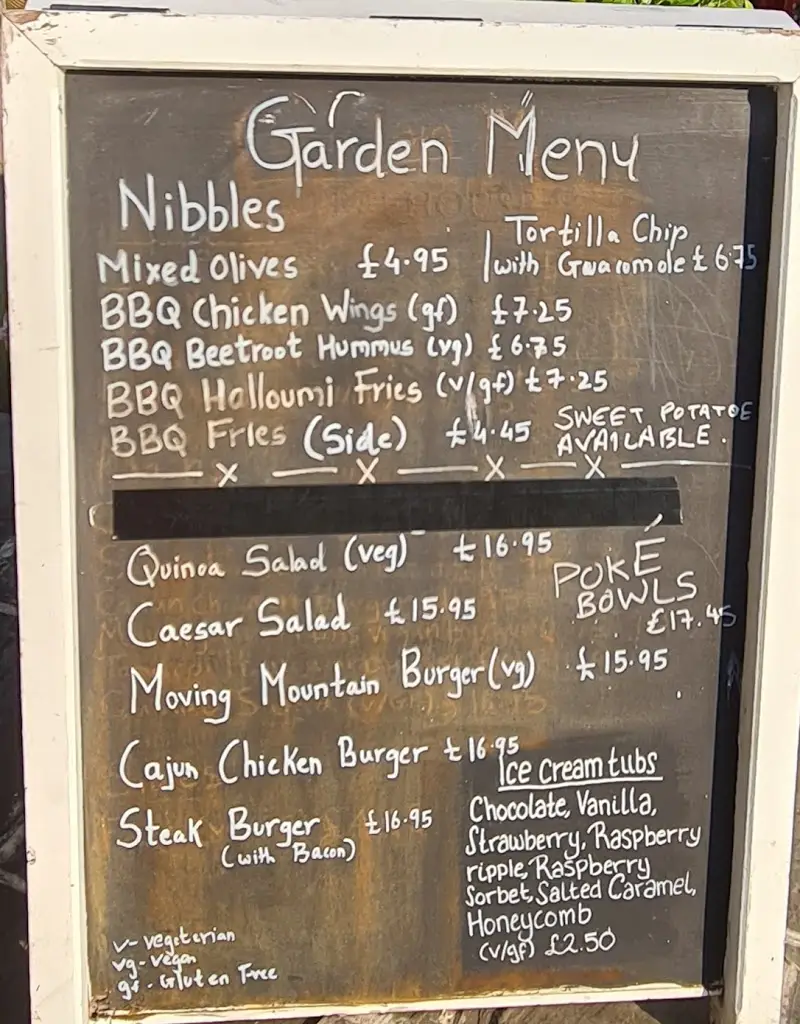 Garden Menu
Nibbles
Mixed Olives £4.95
Tortilla Chip
with Guacomole £6.75
BBQ Chicken Wings (gf) £7.25
BBQ Beetroot Hummus (vg) £6.75
BBQ Halloumi Fries (v/gf) £7.25
BBQ Fries (Side) £4.45
SWEET POTATOE
AVAILABLE.
Quinoa Salad (veg) £16.95
POKÉ
BOWLS
£17.45
Caesar Salad £15.95
Moving Mountain Burger (vg) £15.95
Cajun Chicken Burger £16.95
Steak Burger £16.95
(with Bacon)
Ice Cream tubs
Chocolate, Vanilla,
Strawberry, Raspberry
ripple, Raspberry
Sorbet, Salted Caramel,
Honeycomb
(v/gf) £2.50
v- vegeterian
vg - vegan
gf - Gluten Free